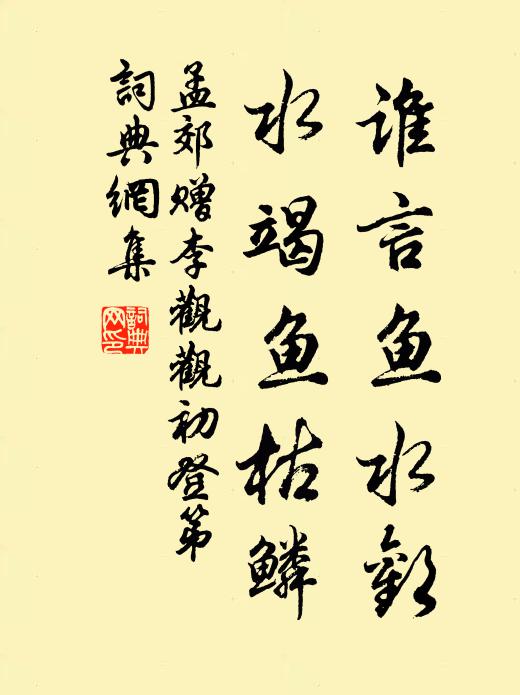 谁言鱼水歡
水竭鱼枯鱗
孟郊赠李觀觀初登第
詞典網集
詞典网印